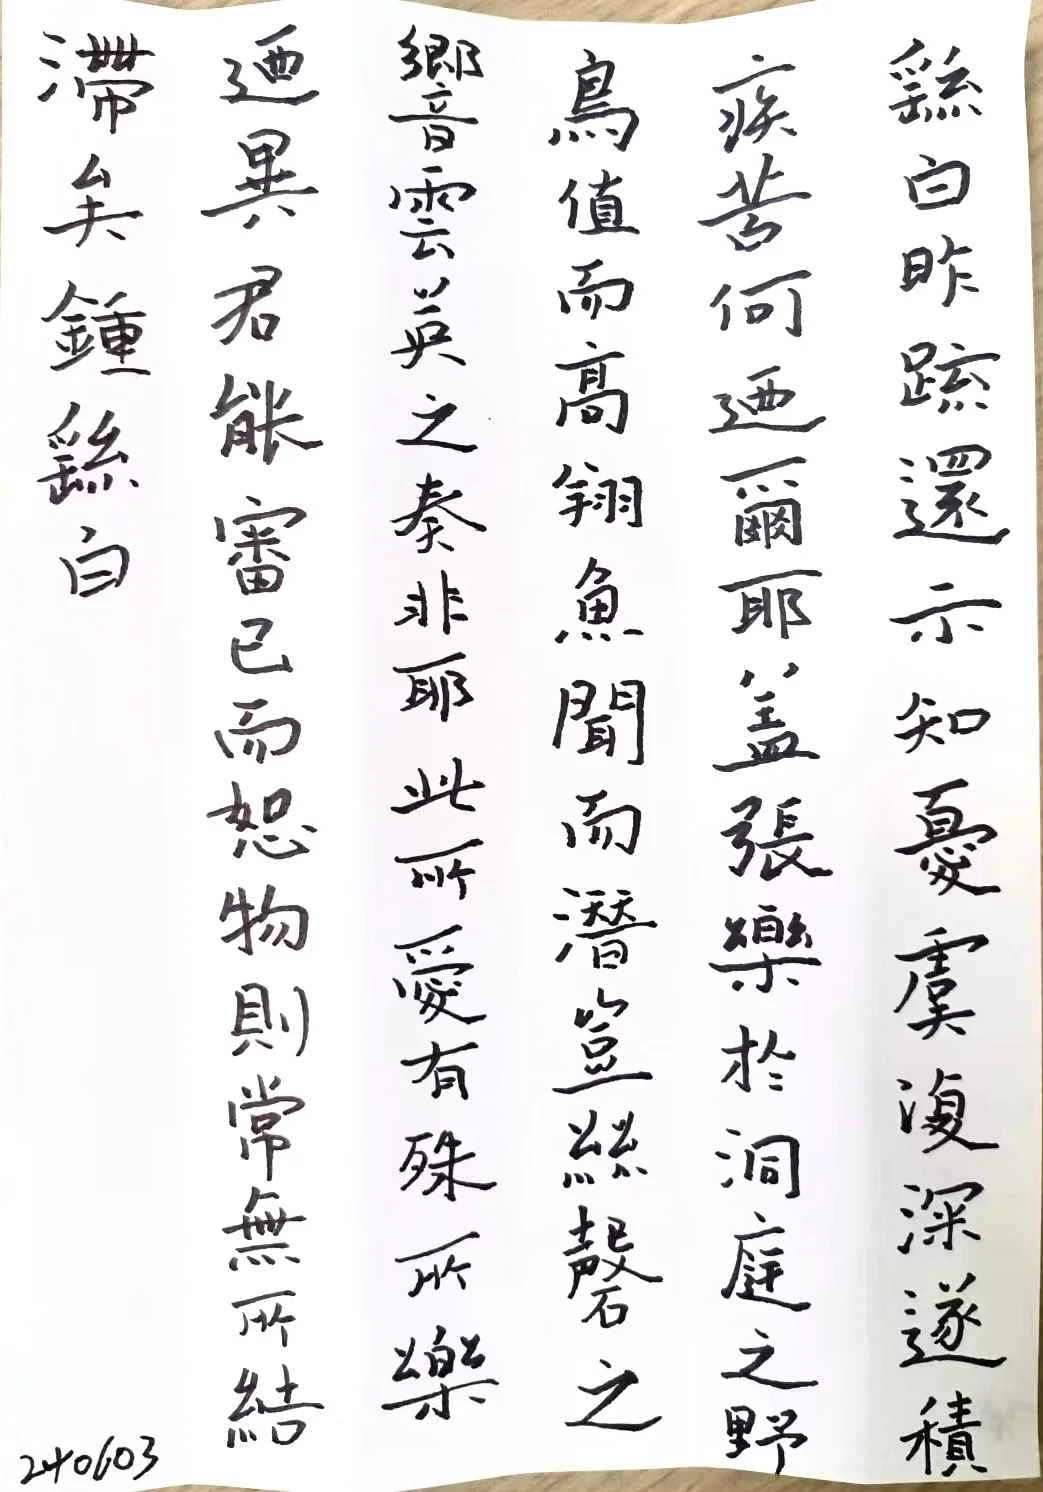 繇白昨疏還示知憂虞復深遂積
疾苦何迺爾耶蓋張樂於洞庭之野
鳥值而高翔魚聞而潛豈絲磬之
響雲英之奏非耶此所愛有殊所樂
迺異君能審己而恕物則常無所結
滯矣鍾繇白
240603